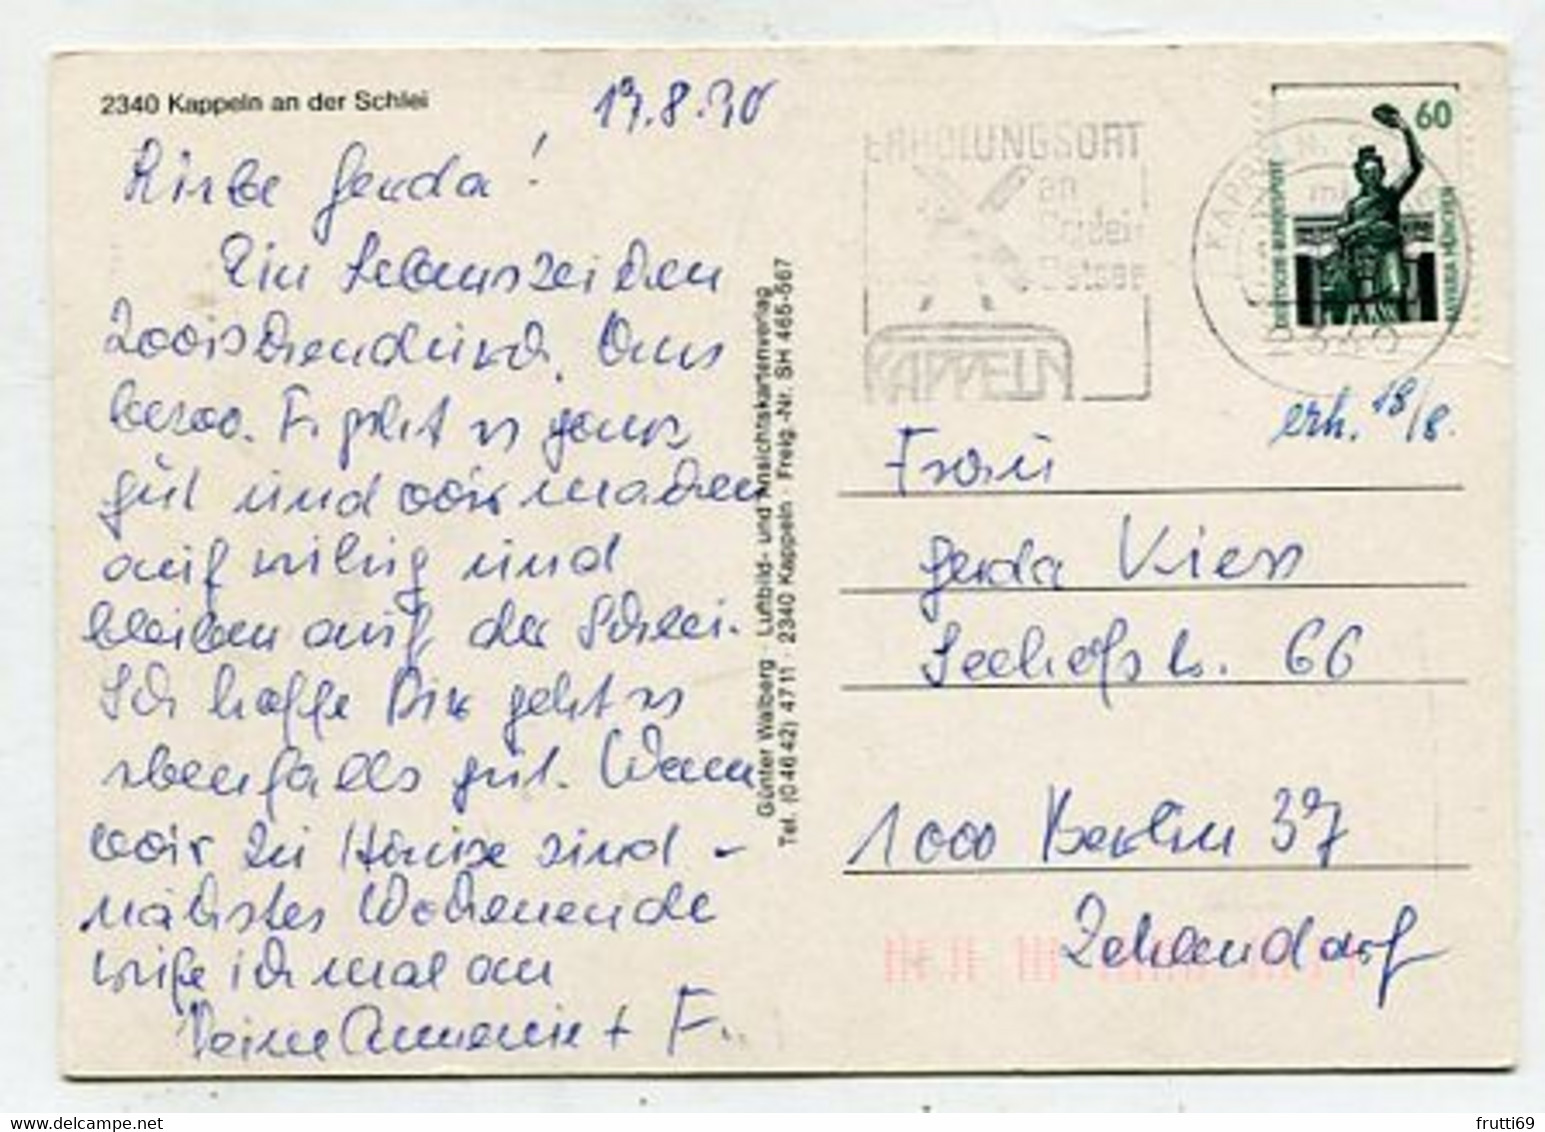 2340 Kappeln an der Schlei
Liebe Gerda!
Ein Lebenszeichen
Uns
geht es ganz
gut und wir machen
auf und
bleiben auf der Schlei.
Ich hoffe Dir geht es
ebenfalls gut. Wenn
wir zu Hause sind -
nächstes Wochenende
rufe ich mal an
Deine Annemie + F.
Günter Walberg · Luftbild- und Ansichtskartenverlag
Tel. (0 46 42) 47 11 · 2340 Kappeln · Freig.-Nr. SH 465-567
ERHOLUNGSORT
an
der
Ostsee
KAPPELN
KAPPELN
2340
60
DEUTSCHE BUNDESPOST
BAVARIA MÜNCHEN
erh. 18/8.
Frau
Gerda Kiess
66
1000 Berlin 37
Zehlendorf
frutti69